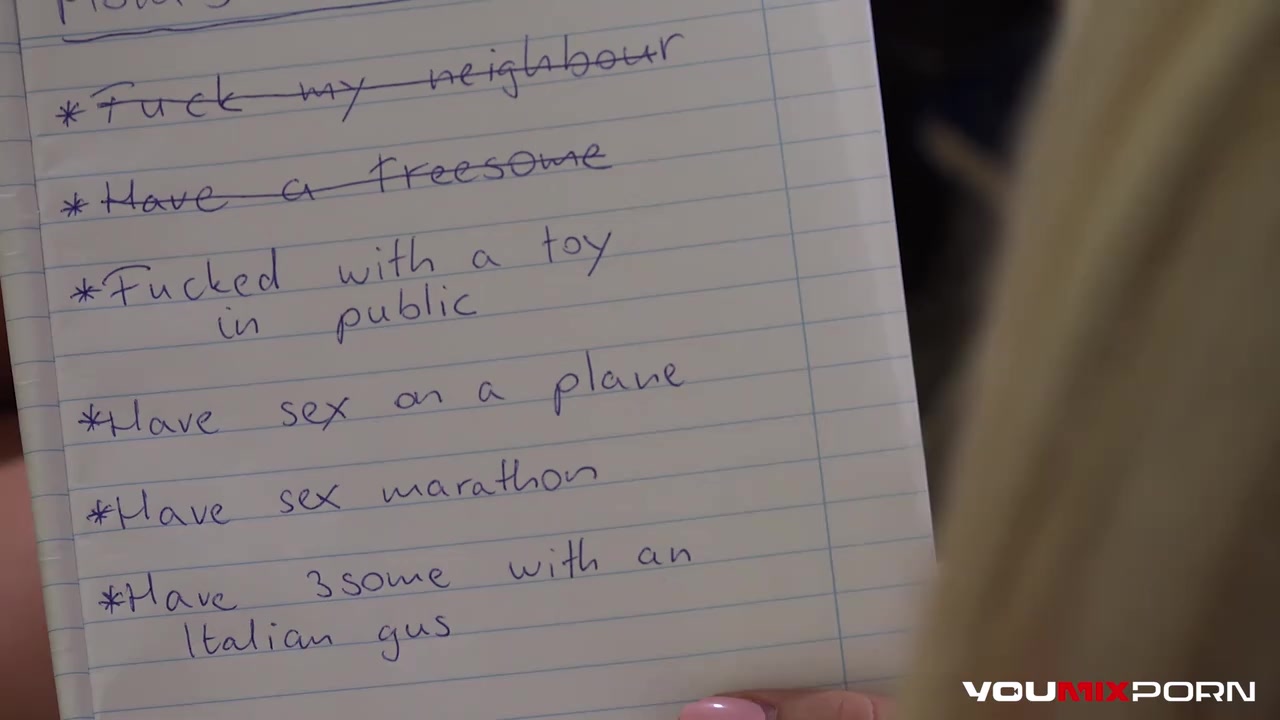 *Fuck my neighbour
*Have a freesome
*Fucked with a toy
in public
*Have sex on a plane
*Have sex marathon
*Have 3some with an
Italian gus
YOUMIXPORN